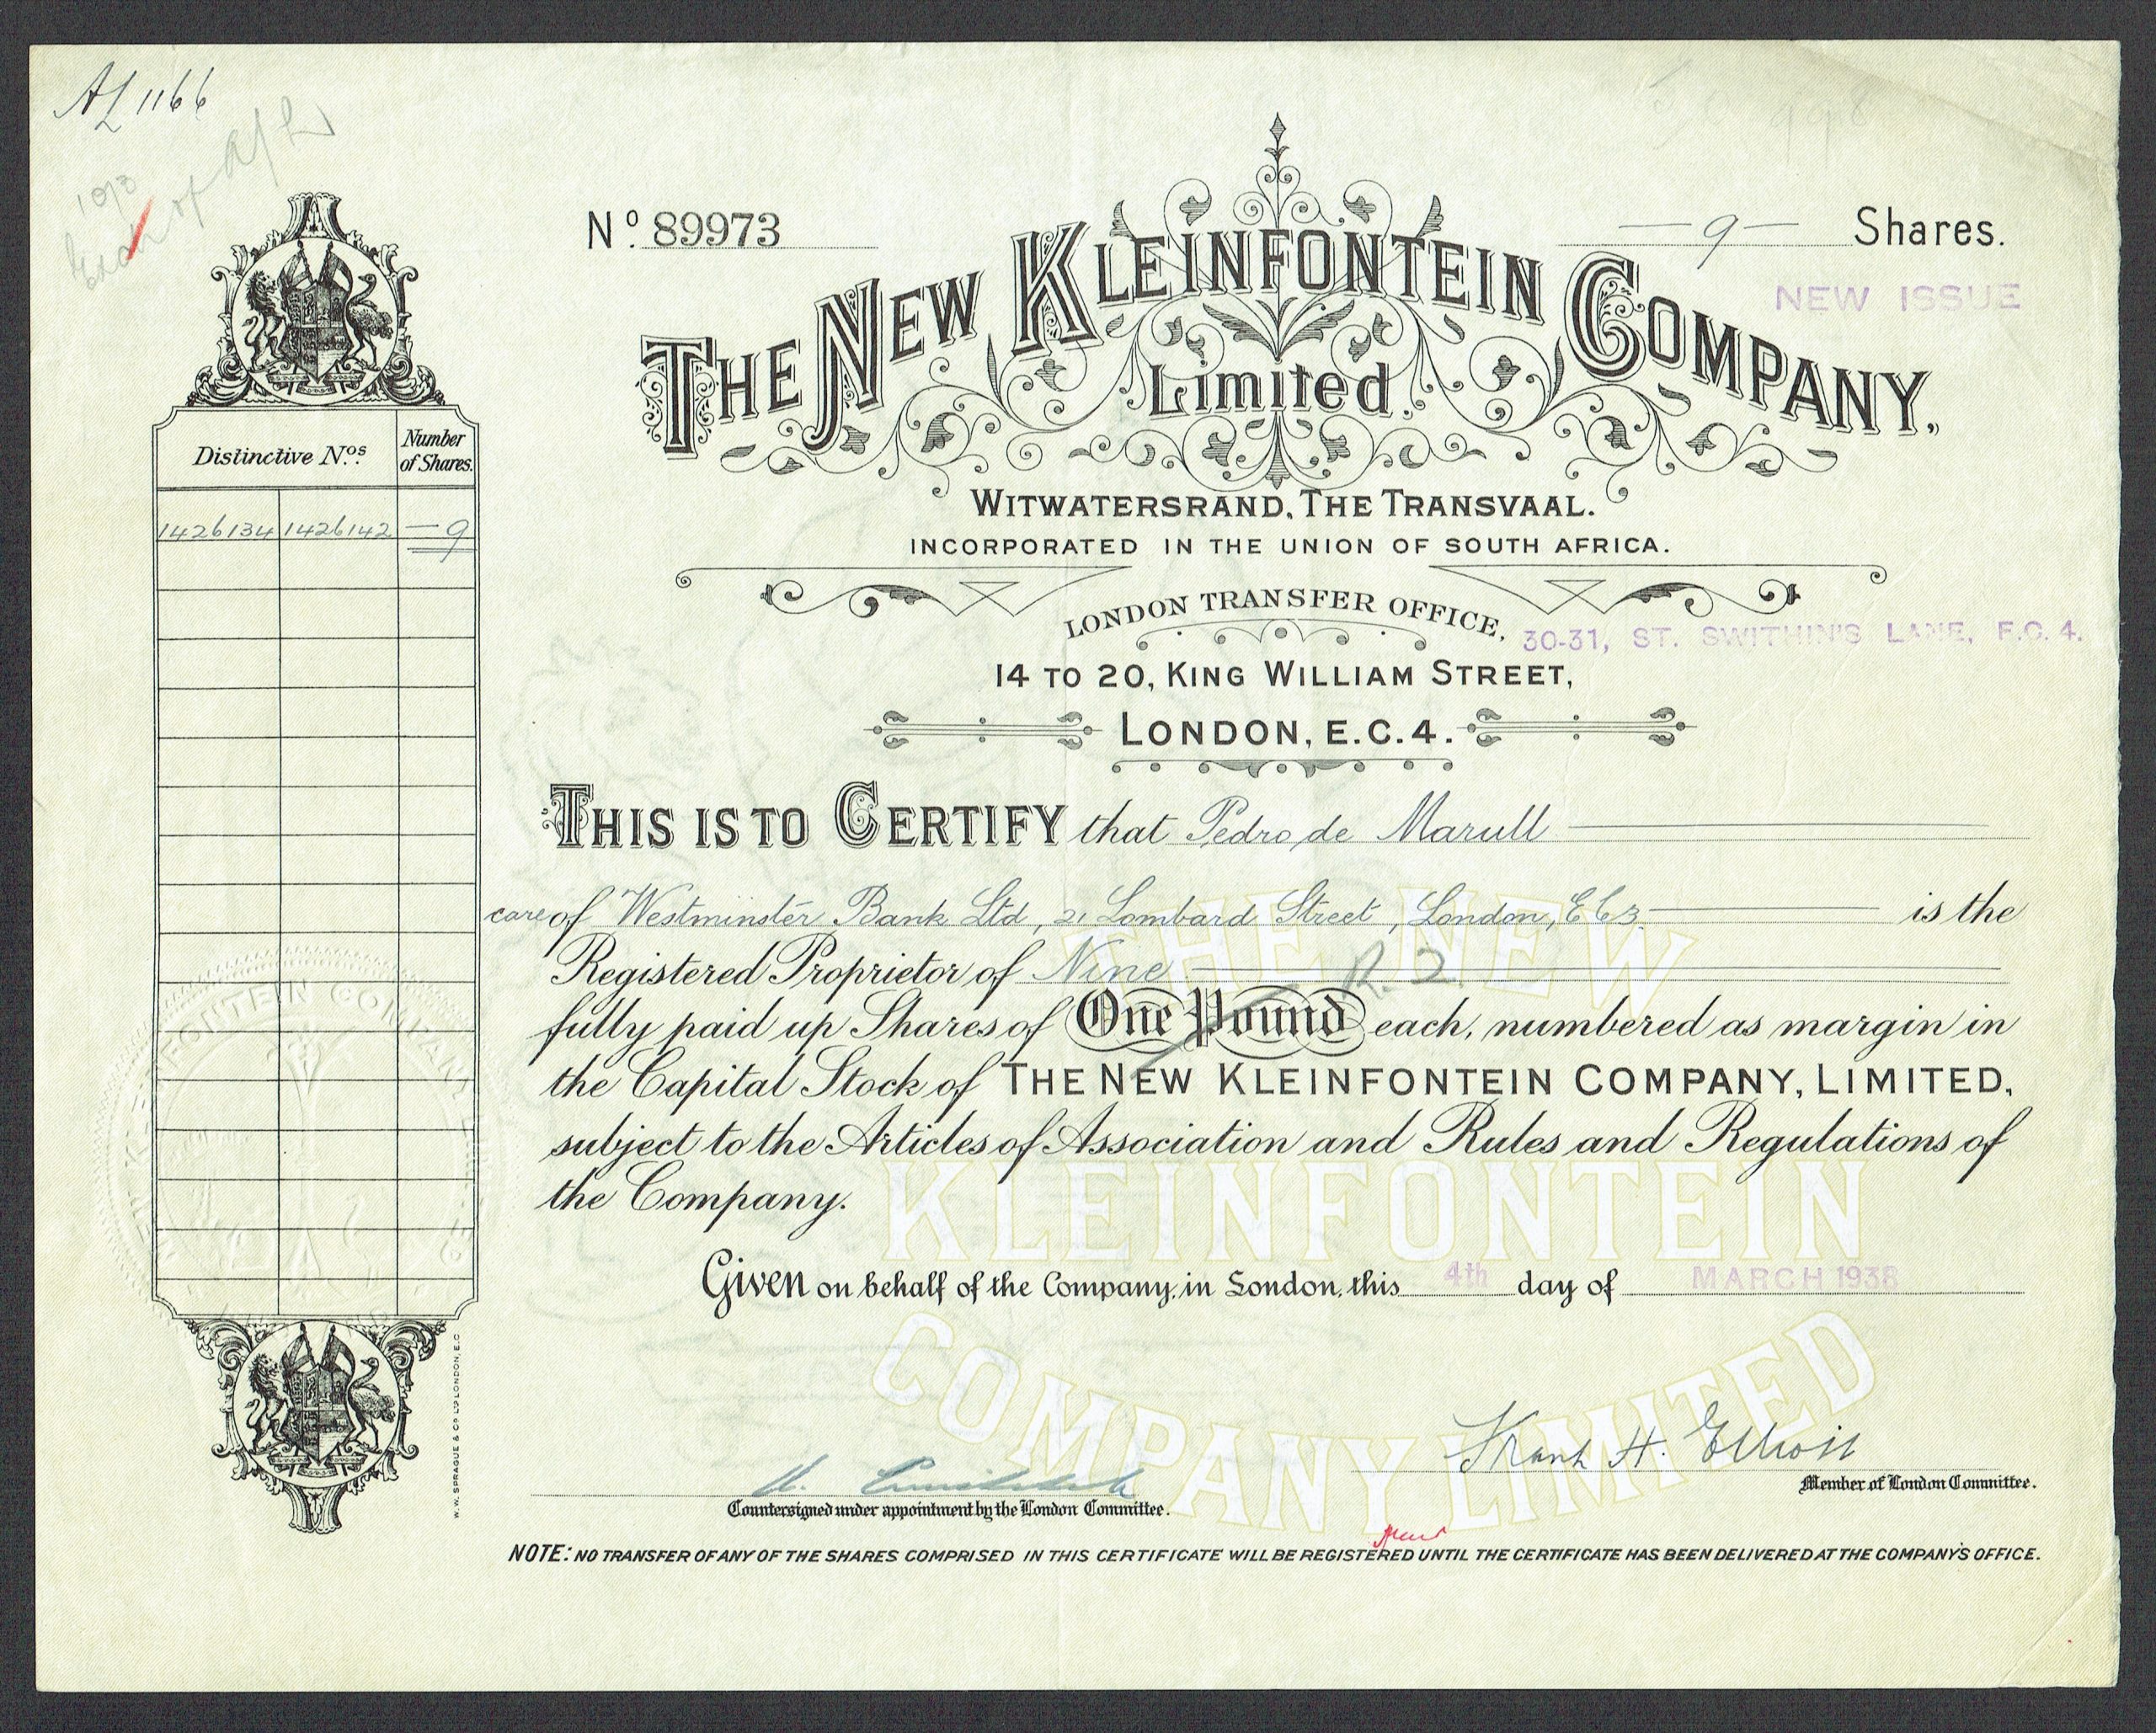 AL 1166
Nº. 89973
— 9 — Shares.
NEW ISSUE
THE NEW KLEINFONTEIN COMPANY,
Limited.
WITWATERSRAND, THE TRANSVAAL.
INCORPORATED IN THE UNION OF SOUTH AFRICA.
LONDON TRANSFER OFFICE,
30-31, ST. SWITHIN'S LANE, E.C. 4.
14 TO 20, KING WILLIAM STREET,
LONDON, E.C.4.
Distinctive Nos.
Number of Shares.
1426134 1426142 — 9
THIS IS TO CERTIFY that Pedro de Marull
care of Westminster Bank Ltd, 21 Lombard Street, London, EC3 is the
Registered Proprietor of Nine
R. 2.
fully paid up Shares of One Pound each, numbered as margin in
the Capital Stock of THE NEW KLEINFONTEIN COMPANY, LIMITED,
subject to the Articles of Association and Rules and Regulations of
the Company.
Given on behalf of the Company, in London, this 4th day of MARCH 1938
THE NEW
KLEINFONTEIN
COMPANY LIMITED
FONTEIN COMPANY
Frank H. Elliott
Member of London Committee.
Countersigned under appointment by the London Committee.
NOTE: NO TRANSFER OF ANY OF THE SHARES COMPRISED IN THIS CERTIFICATE WILL BE REGISTERED UNTIL THE CERTIFICATE HAS BEEN DELIVERED AT THE COMPANY'S OFFICE.
W.W. SPRAGUE & CO LTD LONDON, E.C